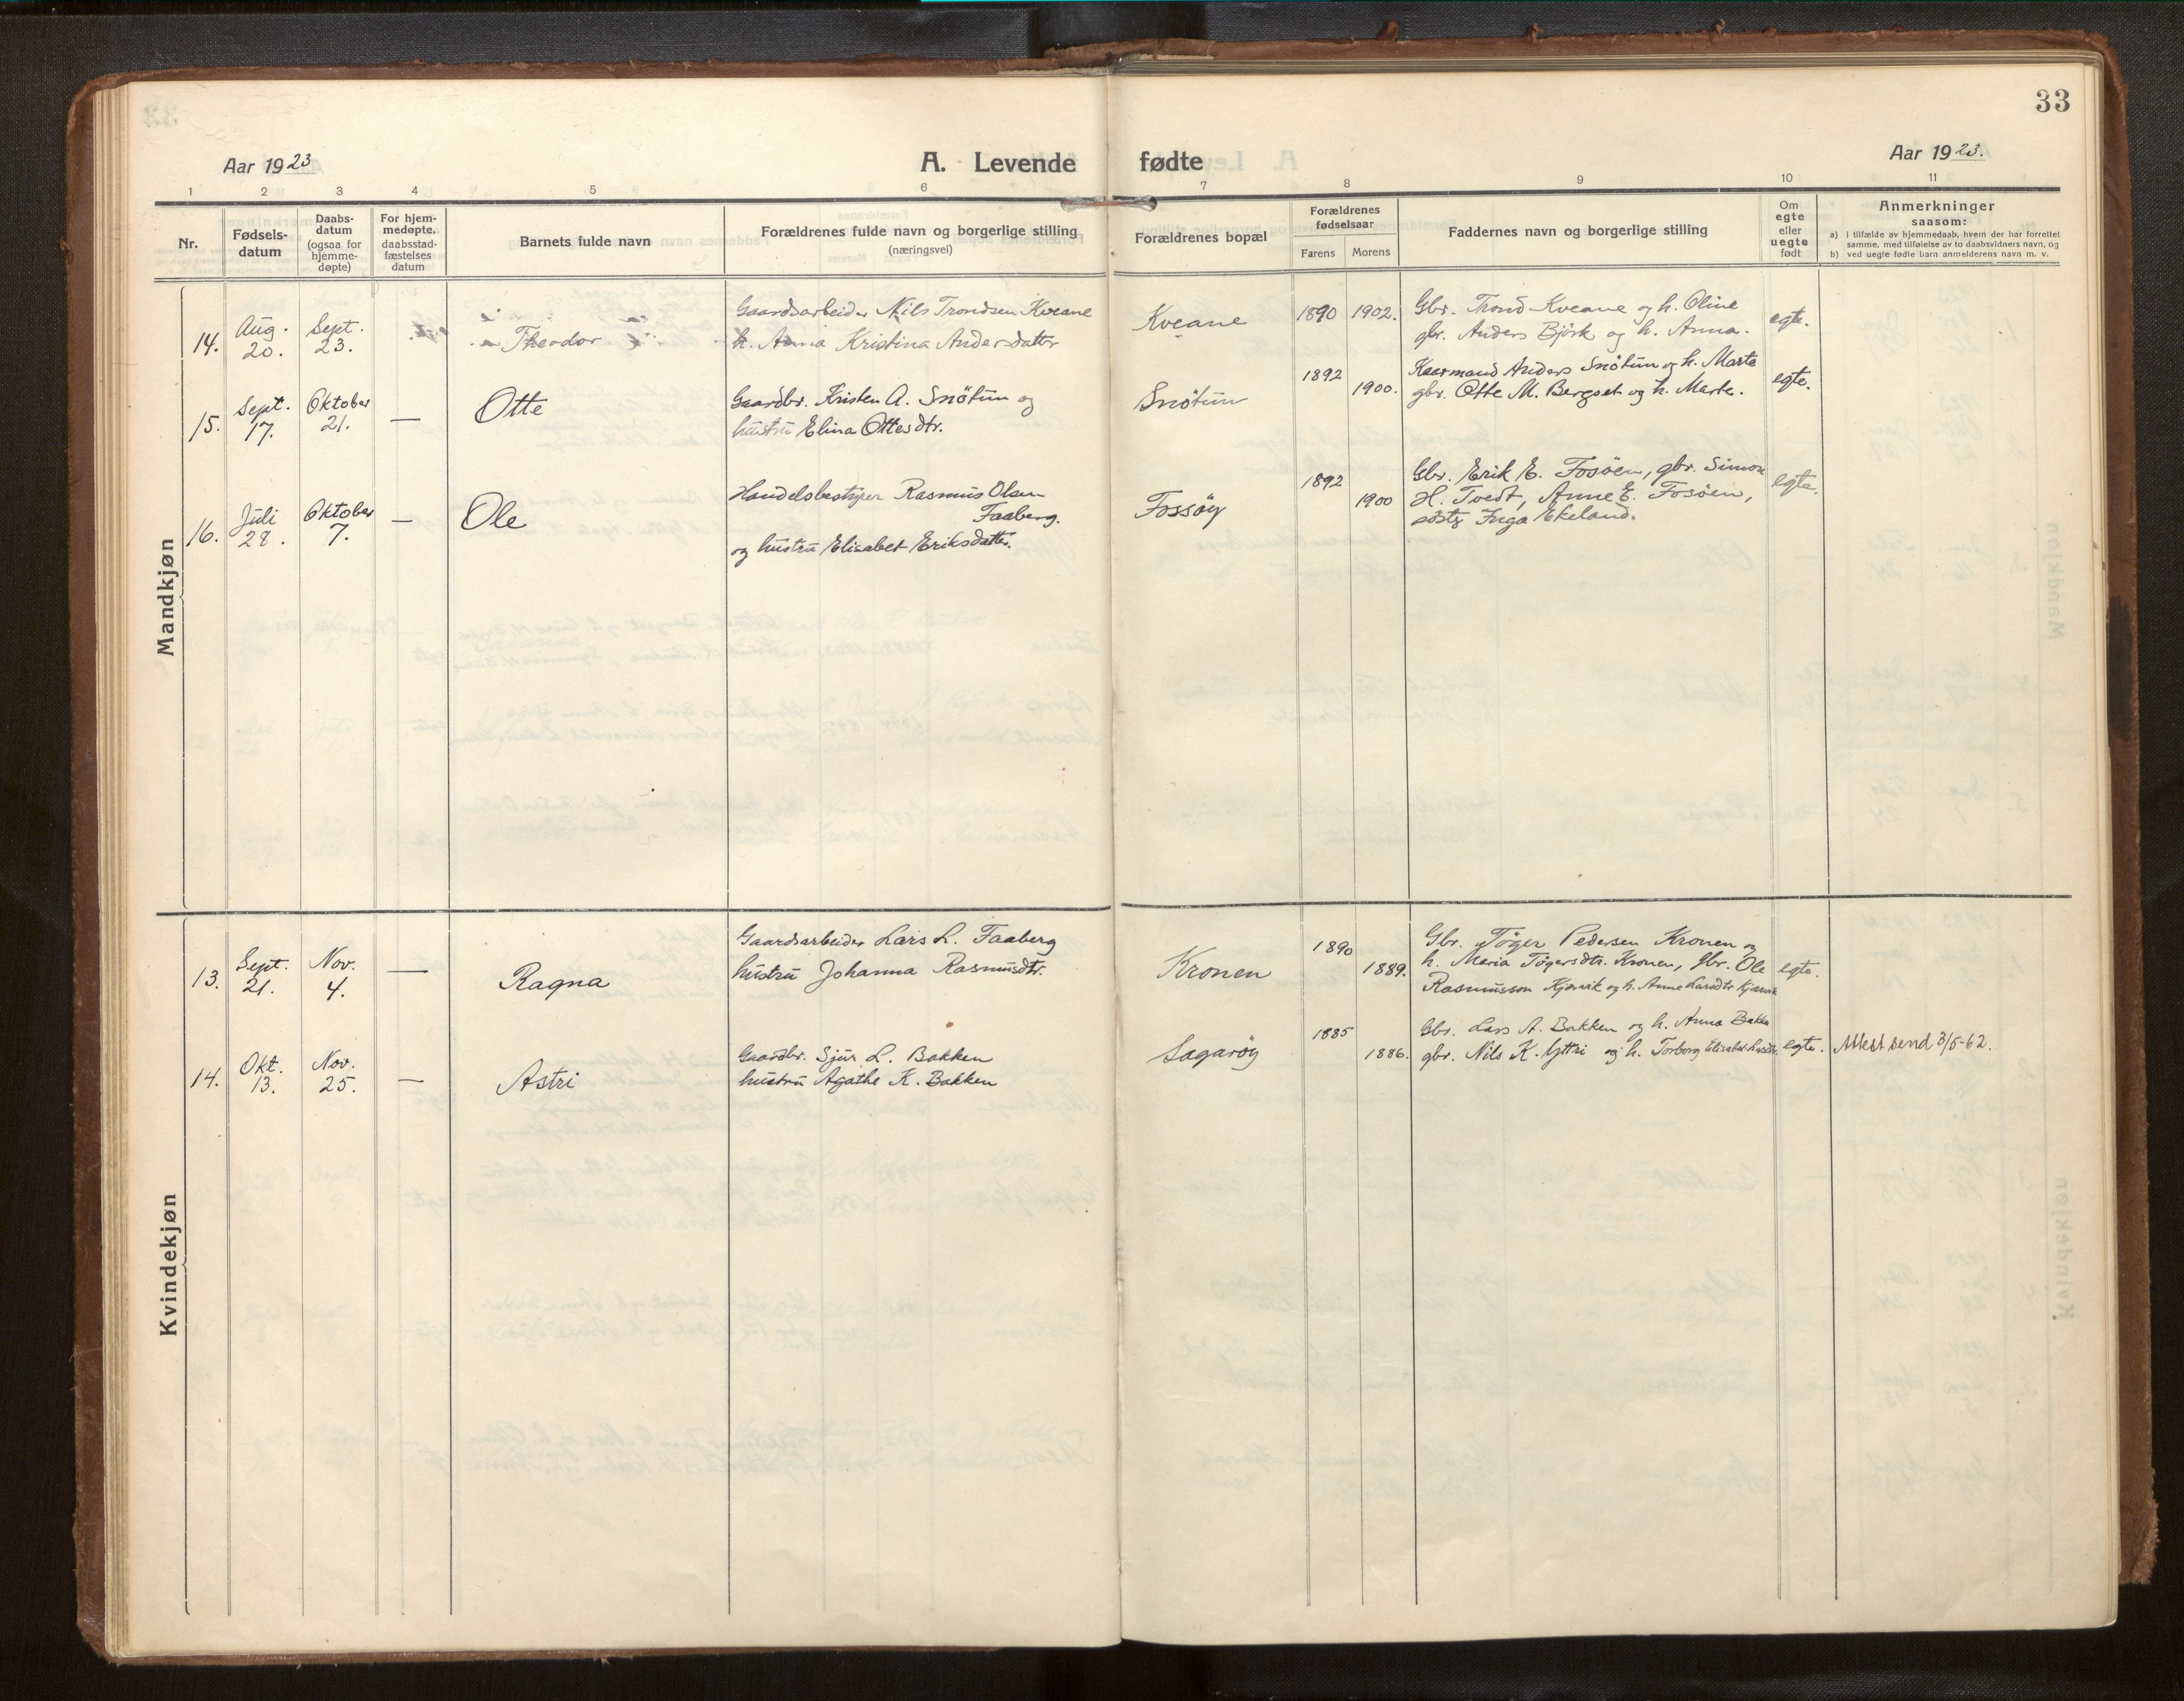 33
Aar 1923
A. Levende fødte
Aar 1923.
1 2 3 4 5 6 7 8 9 10 11
Nr.
Fødsels-
datum
Daabs-
datum
(ogsaa for
hjemme-
døpte)
For hjem-
medøpte,
daabsstad-
fæstelses
datum
Barnets fulde navn
Forældrenes fulde navn og borgerlige stilling
(næringsvei)
Forældrenes bopæl
Forældrenes
fødselsaar
Farens Morens
Faddernes navn og borgerlige stilling
Om
egte
eller
uegte
født
Anmerkninger
saasom:
a) i tilfælde av hjemmedaab, hvem der har forrettet
samme, med tilføielse av to daabsvidners navn, og
b) ved uegte fødte barn anmelderens navn m. v.
Mandkjøn
14.
Aug.
20.
Sept.
23.
Theodor
Gaardsarbeider Nils Trondsen Kveane
h. Anna Kristina Andersdatter
Kveane
1890 1902.
Gbr. Trond Kveane og h. Oline
gbr. Anders Björk og h. Anna.
egte.
15.
Sept.
17.
Oktober
21.
—
Otte
Gaardbr. Kristen A. Snötun og
hustru Elina Ottesdtr.
Snötun
1892
1900.
Kaarmand Anders Snötun og h. Marta
gbr. Otte M. Bergset og h. Marta.
egte.
16.
Juli
28.
Oktober
7.
—
Ole
Handelsbestyrer Rasmus Olsen
Faaberg.
og hustru Elisabet Eriksdatter.
Fossöy
1892
1900
Gbr. Erik E. Fosöen, gbr. Simon
H. Tvedt, Anne E. Fosöen,
Inga Ekeland.
egte.
Kvindekjøn
13.
Sept.
21.
Nov.
4.
—
Ragna
Gaardsarbeider Lars L. Faaberg
hustru Johanna Rasmusdtr.
Kronen
1890
1889.
Gbr. Töger Pedersen Kronen og
h. Maria Tögersdtr. Kronen, gbr. Ole
Rasmusson Kjærvik og h. Anne Larsdtr Kjærvik
egte.
14.
Okt.
13.
Nov.
25.
—
Astri
Gaardbr. Sjur L. Bakken
hustru Agathe K. Bakken
Sagaröy
1885
1886.
Gbr. Lars A. Bakken og h. Anna Bakken
gbr. Nils K. Yttri og h. Torborg Elisabet
egte.
Attest send 3/5-62.